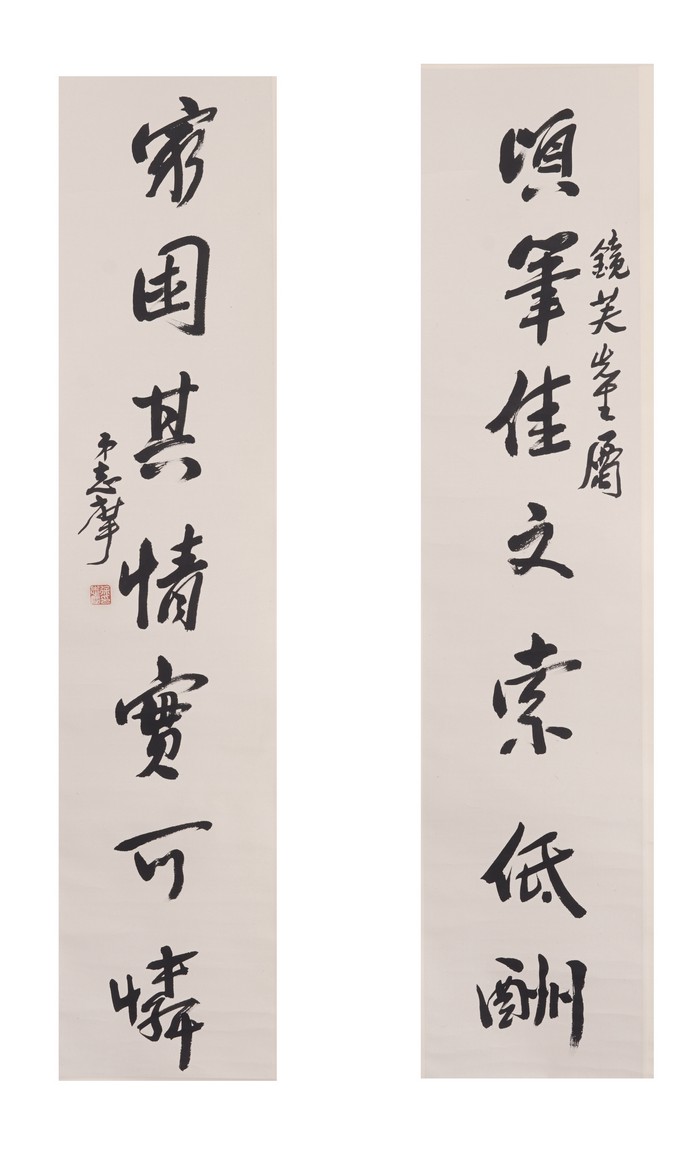 鏡芙先生屬
筆佳文索低酬
窮困其情實可憐
弟志摩